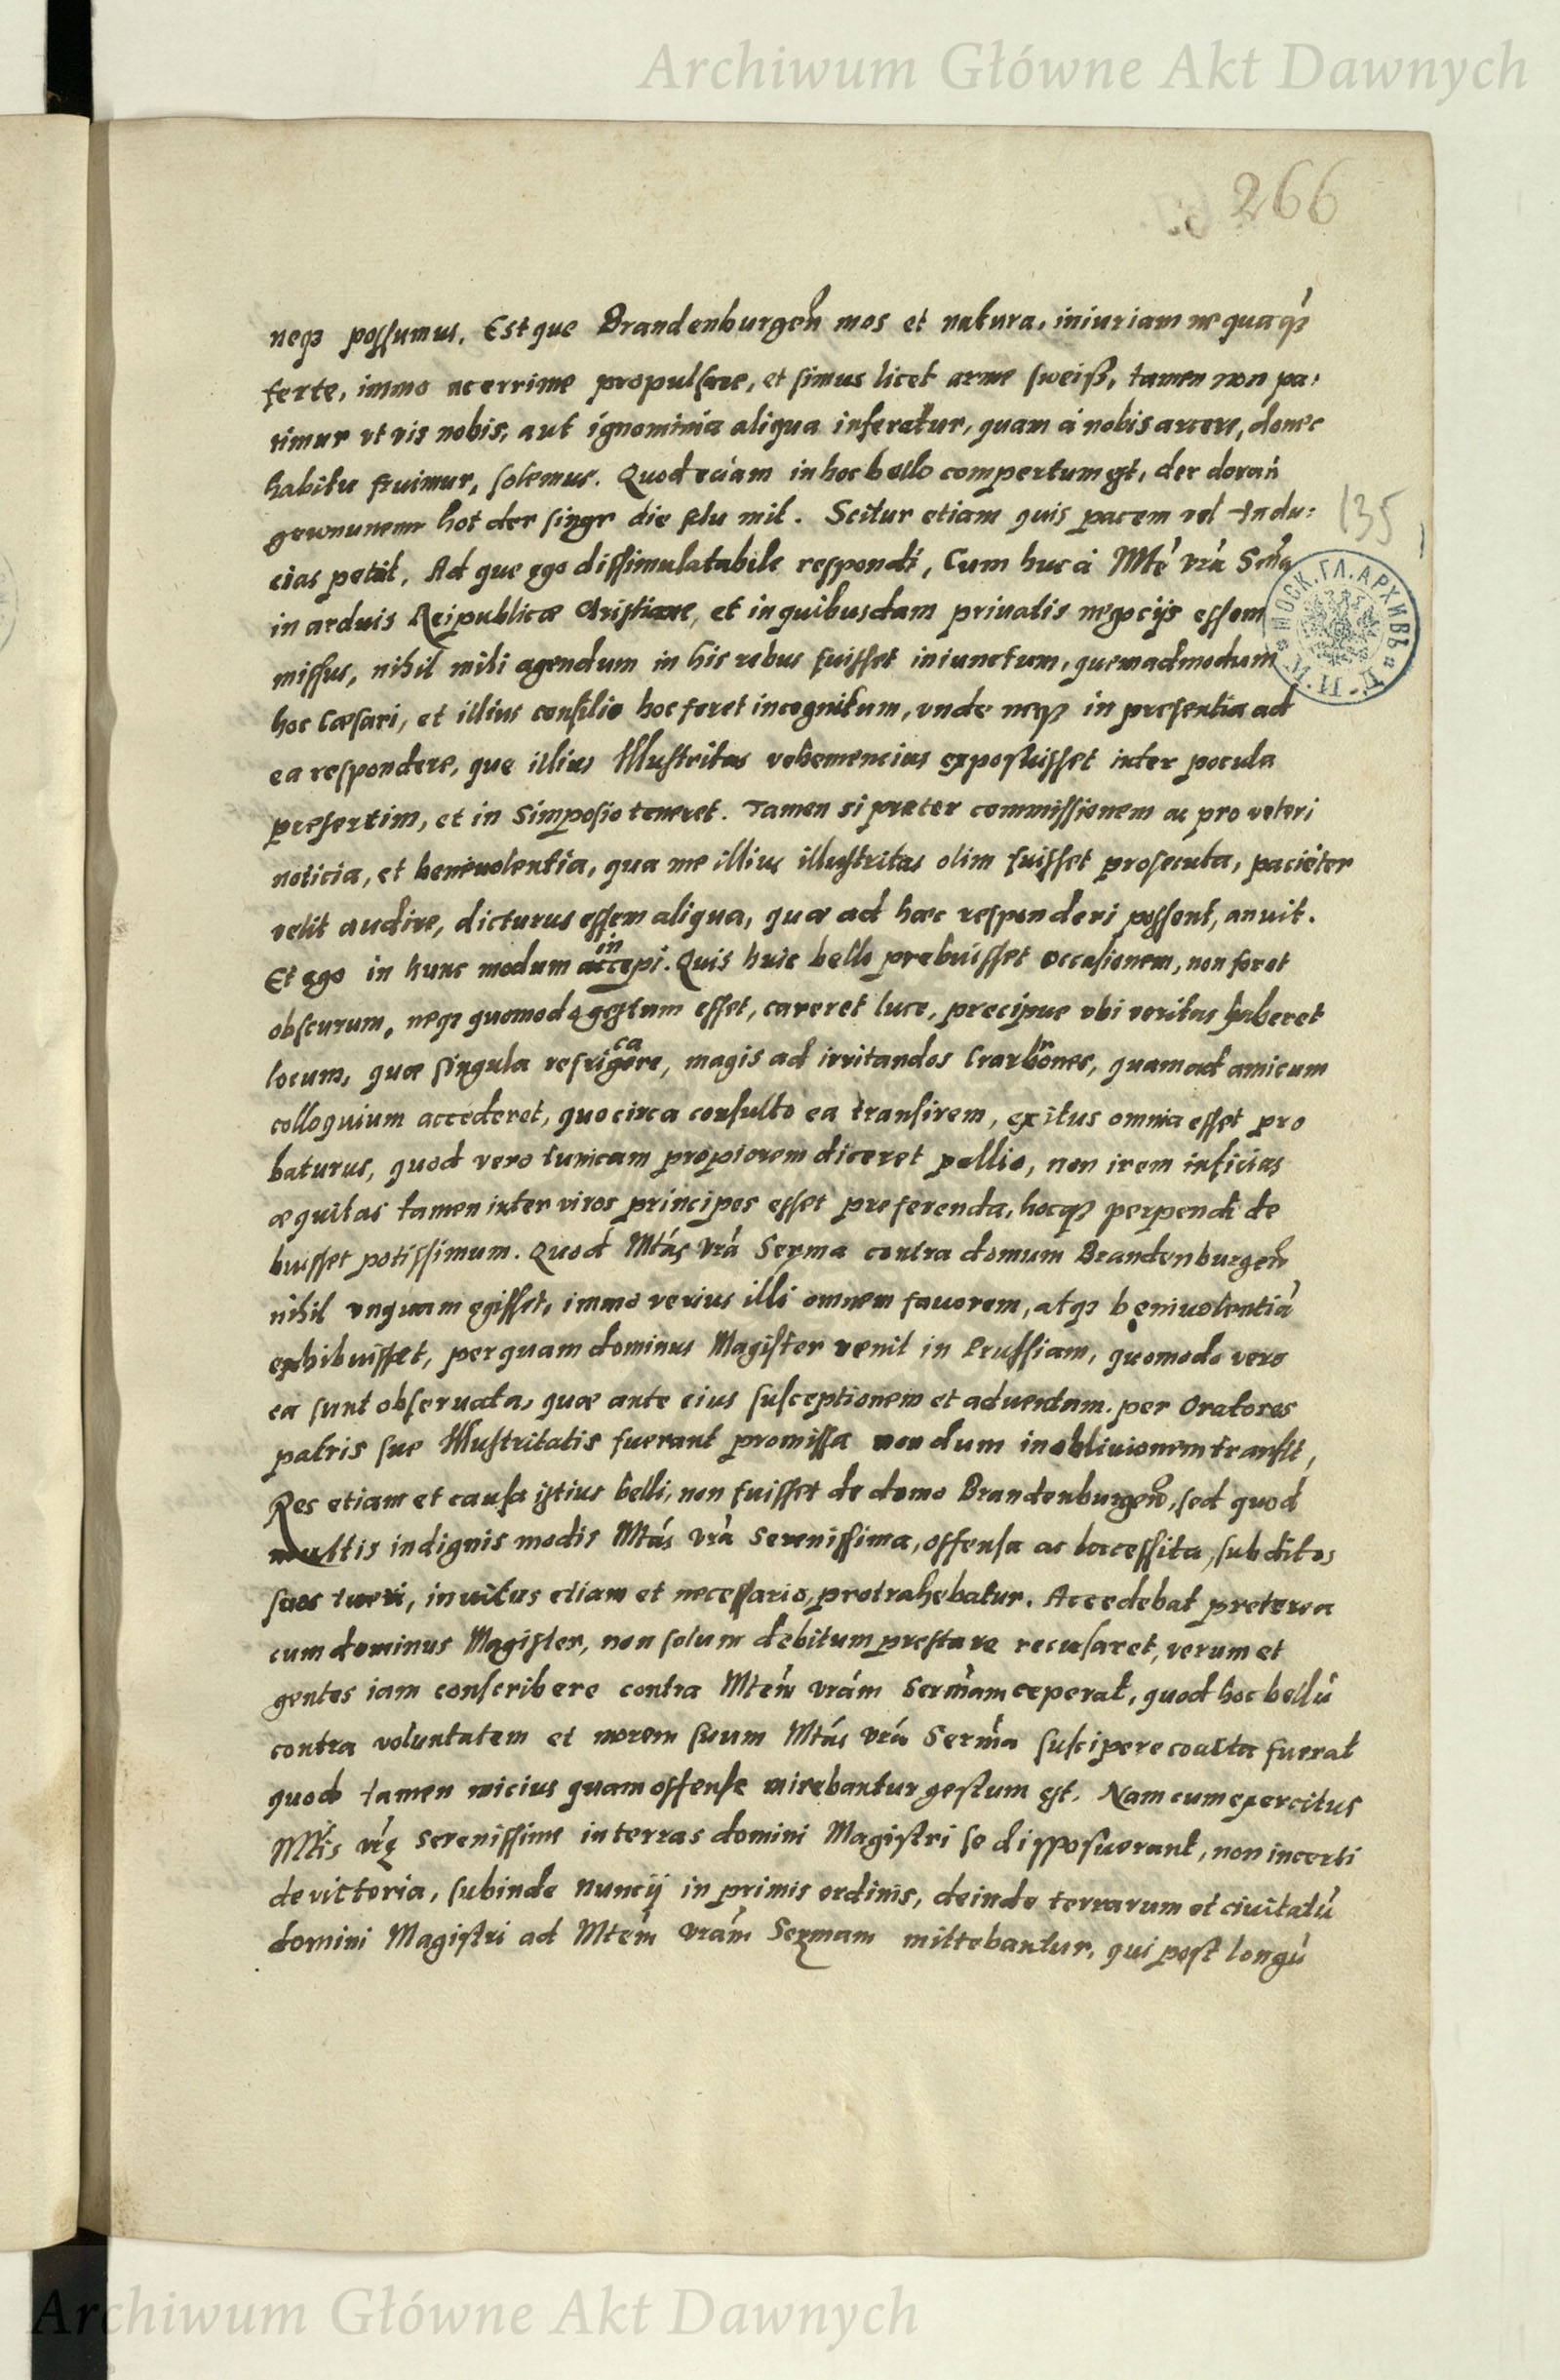 Archiwum Główne Akt Dawnych
266
neqȝ possumus. Estque Brandenburgeñ mos et natura, iniuriam nequaqȝ
ferre, immo acerrime propulsare, et simus licet arme sweiß, tamen non pa-
timur vt vis nobis, aut ignominia aliqua inferatur, quam á nobis arcere, donec
habitu fruimur, solemus. Quod eciam in hoc bello compertum est, der doran
gewnunenn hot der singe die mit. Scitur etiam quis pacem vel Indu:
cias petiit. Ad que ego dissimulatabile respondi, Cum huc á Mte vrá Sma
135
in arduis Reipublicæ Christiane, et in quibusdam priuatis negocijs essem
missus, nihil mihi agendum in his rebus fuisset iniunctum, quemadmodum
hoc Cæsari, et illius consilio hoc foret incognitum, vnde neqȝ in presentia ad
ea respondere, que illius Illustritas vehemencius exposuisset inter pocula
presertim, et in Simposio teneret. Tamen si preter commissionem ac pro veteri
noticia, et beneuolentia, qua me illius illustritas olim fuisset prosecuta, paciēter
velit audire, dicturus essem aliqua, quæ ad hæc responderi possent, anuit.
Et ego in hunc modum incepi. Quis huic bello prebuisset occasionem, non foret
obscurum, neqȝ quomodo gestum esset, careret luce, precipue vbi veritas haberet
locum, quæ singula refricare, magis ad irritandos Crabrones, quam ad amicum
colloquium accederet, quocirca consulto ea transirem, exitus omnia esset pro
baturus, quod vero tunicam propiorem diceret pallio, non irem inficias
æquitas tamen inter viros principes esset preferenda, hocqȝ perpendi de
buisset potissimum. Quod Mtás vrá Serma contra domum Brandenburgeñ
nihil vnquam egisset, immo verius illi omnem fauorem, atqȝ beniuolentiā
exhibuisset, per quam dominus Magister venit in Prussiam, quomodo vero
ea sunt obseruata, quæ ante eius susceptionem et aduentum per Oratores
patris sue Illustritatis fuerant promissa non dum in obliuionem transit,
Res etiam et causa istius belli, non fuisset de domo Brandenburgeñ, sed quod
multis indignis modis Mtás vrá Serenissima, offensa ac lacessita, subditos
suos tueri, inuitus etiam et necessario, protrahebatur. Accedebat preterea
cum dominus Magister, non solum debitum prestare recusaret, verum et
gentes iam conscribere contra Mtem vrám Sermam ceperat, quod hoc bellū
contra voluntatem et morem suum Mtás vrá Serma suscipere coacta fuerat
quod tamen micius quam offense mirebantur gestum est. Nam cum exercitus
Mtis vrę Serenissime in terras domini Magistri se disposuerant, non incerti
de victoria, subinde Nuncij in primis ordinis, deinde terrarum et ciuitatū
domini Magistri ad Mtem vrám Sermam mittebantur, qui post longū
Archiwum Główne Akt Dawnych